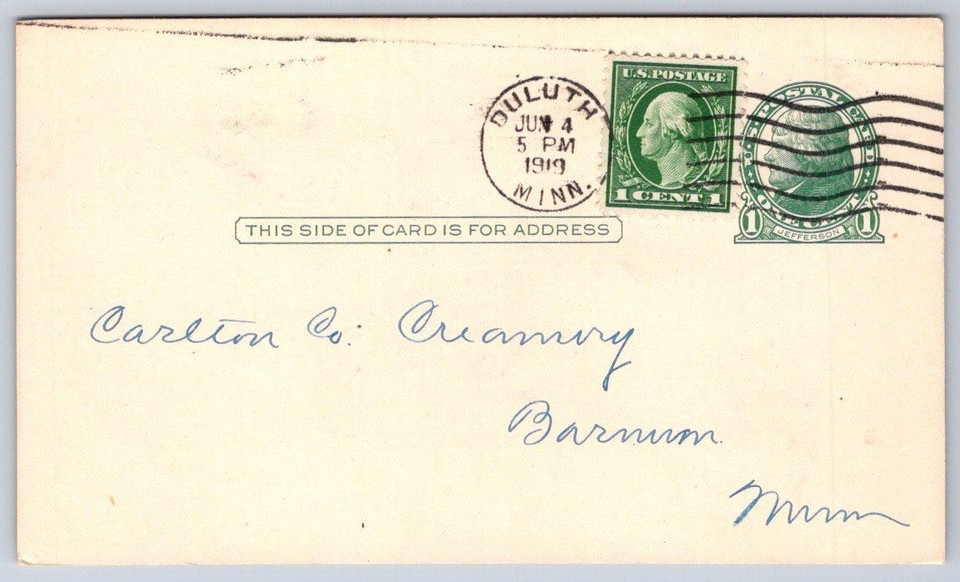 DULUTH
JUN 4
5 PM
1919
MINN.
U.S. POSTAGE
1 CENT 1
U.S. POSTAL CARD
ONE CENT
1 JEFFERSON 1
THIS SIDE OF CARD IS FOR ADDRESS
Carlton Co. Creamery
Barnum
Minn